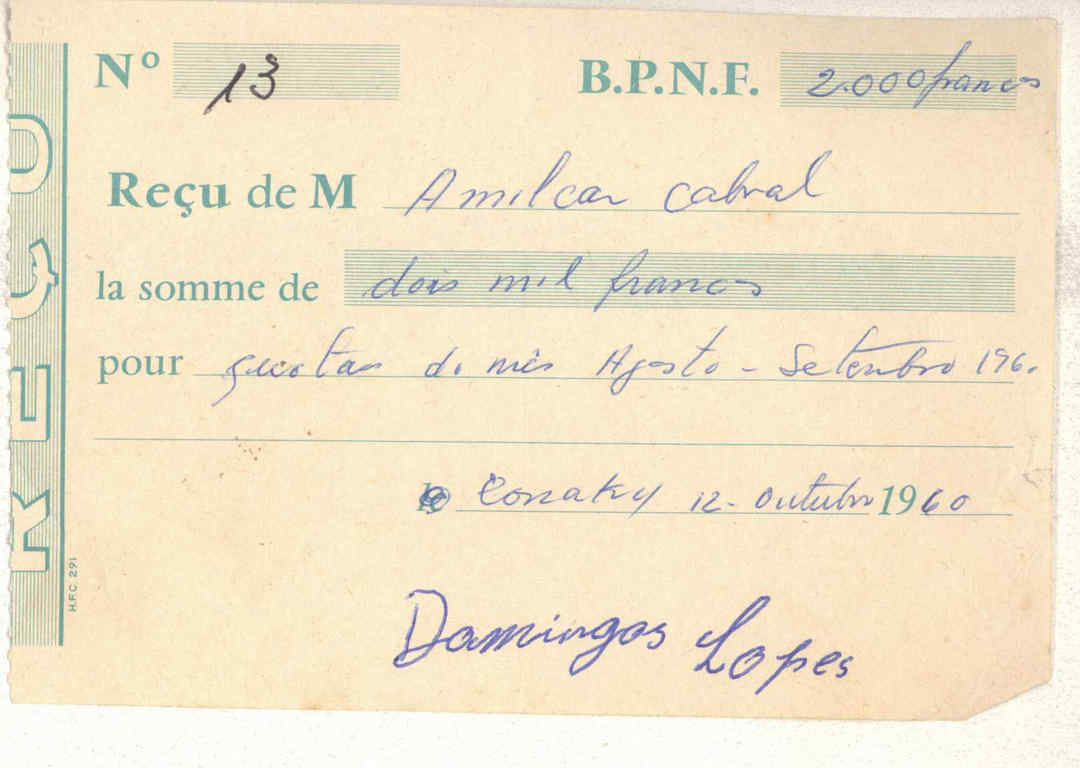 Nº 13 B.P.N.F. 2.000 francos
Reçu de M Amilcar Cabral
la somme de dois mil francos
pour quotas do mês Agosto - Setembro 196.
le Conakry 12- Outubro 1960
Damingos Lopes
REÇU
H.F.C. 291